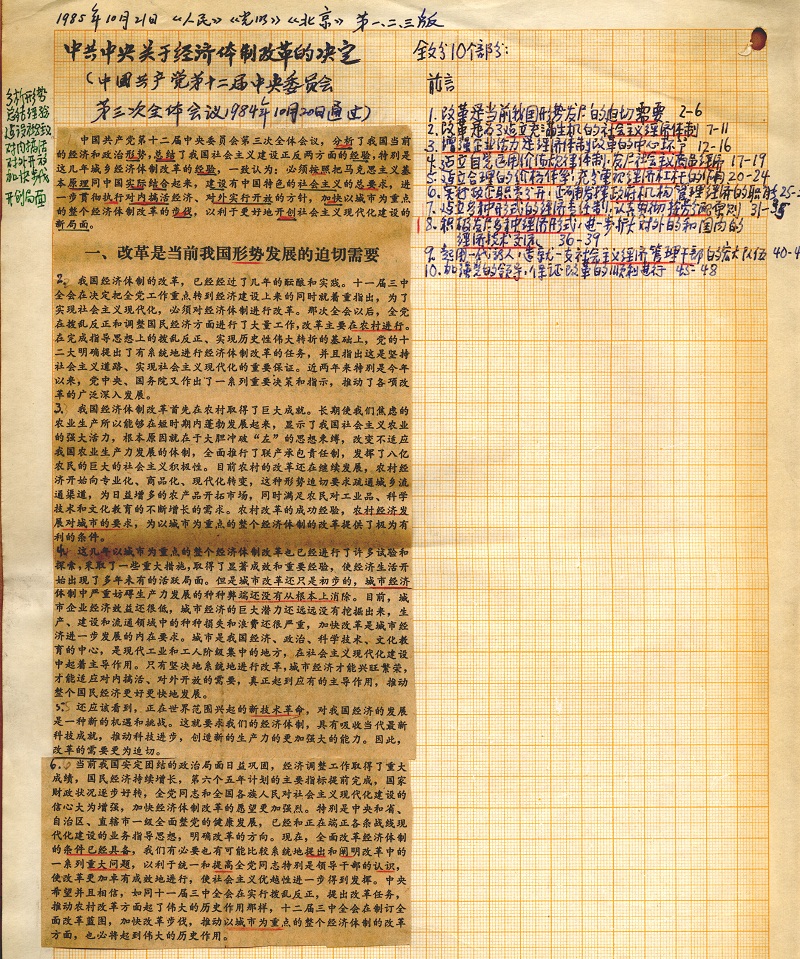 1985年10月21日《人民》《光明》《北京》第一、二、三版
中共中央关于经济体制改革的决定
(中国共产党第十二届中央委员会
第三次全体会议1984年10月20日通过)
分析形势
总结经验
对内搞活
对外开放
加快步伐
开创局面
中国共产党第十二届中央委员会第三次全体会议，分析了我国当前
的经济和政治形势，总结了我国社会主义建设正反两方面的经验，特别是
这几年城乡经济体制改革的经验，一致认为：必须按照把马克思主义基
本原理同中国实际结合起来，建设有中国特色的社会主义的总要求，进
一步贯彻执行对内搞活经济、对外实行开放的方针，加快以城市为重点
的整个经济体制改革的步伐，以利于更好地开创社会主义现代化建设的
新局面。
一、改革是当前我国形势发展的迫切需要
2. 我国经济体制的改革，已经经过了几年的酝酿和实践。十一届三中
全会在决定把全党工作重点转到经济建设上来的同时就着重指出，为了
实现社会主义现代化，必须对经济体制进行改革。那次全会以后，全党
在拨乱反正和调整国民经济方面进行了大量工作，改革主要在农村进行。
在完成指导思想上的拨乱反正、实现历史性伟大转折的基础上，党的十
二大明确提出了有系统地进行经济体制改革的任务，并且指出这是坚持
社会主义道路、实现社会主义现代化的重要保证。近两年来特别是今年
以来，党中央、国务院又作出了一系列重要决策和指示，推动了各项改
革的广泛深入发展。
3. 我国经济体制改革首先在农村取得了巨大成就。长期使我们焦虑的
农业生产所以能够在短时期内蓬勃发展起来，显示了我国社会主义农业
的强大活力，根本原因就在于大胆冲破“左”的思想束缚，改变不适应
我国农业生产力发展的体制，全面推行了联产承包责任制，发挥了八亿
农民的巨大的社会主义积极性。目前农村的改革还在继续发展，农村经
济开始向专业化、商品化、现代化转变，这种形势迫切要求疏通城乡流
通渠道，为日益增多的农产品开拓市场，同时满足农民对工业品、科学
技术和文化教育的不断增长的需求。农村改革的成功经验，农村经济发
展对城市的要求，为以城市为重点的整个经济体制的改革提供了极为有
利的条件。
4. 这几年以城市为重点的整个经济体制改革也已经进行了许多试验和
探索，采取了一些重大措施，取得了显著成效和重要经验，使经济生活开
始出现了多年未有的活跃局面。但是城市改革还只是初步的，城市经济
体制中严重妨碍生产力发展的种种弊端还没有从根本上消除。目前，城
市企业经济效益还很低，城市经济的巨大潜力还远远没有挖掘出来，生
产、建设和流通领域中的种种损失和浪费还很严重，加快改革是城市经
济进一步发展的内在要求。城市是我国经济、政治、科学技术、文化教
育的中心，是现代工业和工人阶级集中的地方，在社会主义现代化建设
中起着主导作用。只有坚决地系统地进行改革，城市经济才能兴旺繁荣，
才能适应对内搞活、对外开放的需要，真正起到应有的主导作用，推动
整个国民经济更好更快地发展。
5. 还应该看到，正在世界范围兴起的新技术革命，对我国经济的发展
是一种新的机遇和挑战。这就要求我们的经济体制，具有吸收当代最新
科技成就，推动科技进步，创造新的生产力的更加强大的能力。因此，
改革的需要更为迫切。
6. 当前我国安定团结的政治局面日益巩固，经济调整工作取得了重大
成绩，国民经济持续增长，第六个五年计划的主要指标提前完成，国家
财政状况逐步好转，全党同志和全国各族人民对社会主义现代化建设的
信心大为增强，加快经济体制改革的愿望更加强烈。特别是中央和省、
自治区、直辖市一级全面整党的健康发展，已经和正在端正各条战线现
代化建设的业务指导思想，明确改革的方向。现在，全面改革经济体制
的条件已经具备，我们有必要也有可能比较系统地提出和阐明改革中的
一系列重大问题，以利于统一和提高全党同志特别是领导干部的认识，
使改革更加卓有成效地进行，使社会主义优越性进一步得到发挥。中央
希望并且相信，如同十一届三中全会在实行拨乱反正，提出改革任务，
推动农村改革方面起了伟大的历史作用那样，十二届三中全会在制订全
面改革蓝图，加快改革步伐，推动以城市为重点的整个经济体制的改革
方面，也必将起到伟大的历史作用。
全文分10个部分：
前言
1. 改革是当前我国形势发展的迫切需要 2-6
2. 改革是为了建立充满生机的社会主义经济体制 7-11
3. 增强企业活力是经济体制改革的中心环节 12-16
4. 建立自觉运用价值规律的计划体制，发展社会主义商品经济 17-19
5. 建立合理的价格体系，充分重视经济杠杆的作用 20-24
6. 实行政企职责分开，正确发挥政府机构管理经济的职能 25-
7. 建立多种形式的经济责任制，认真贯彻按劳分配原则 31-35
8. 积极发展多种经济形式，进一步扩大对外的和国内的
经济技术交流 36-39
9. 起用一代新人，造就一支社会主义经济管理干部的宏大队伍 40-4
10. 加强党的领导，保证改革的顺利进行 45-48